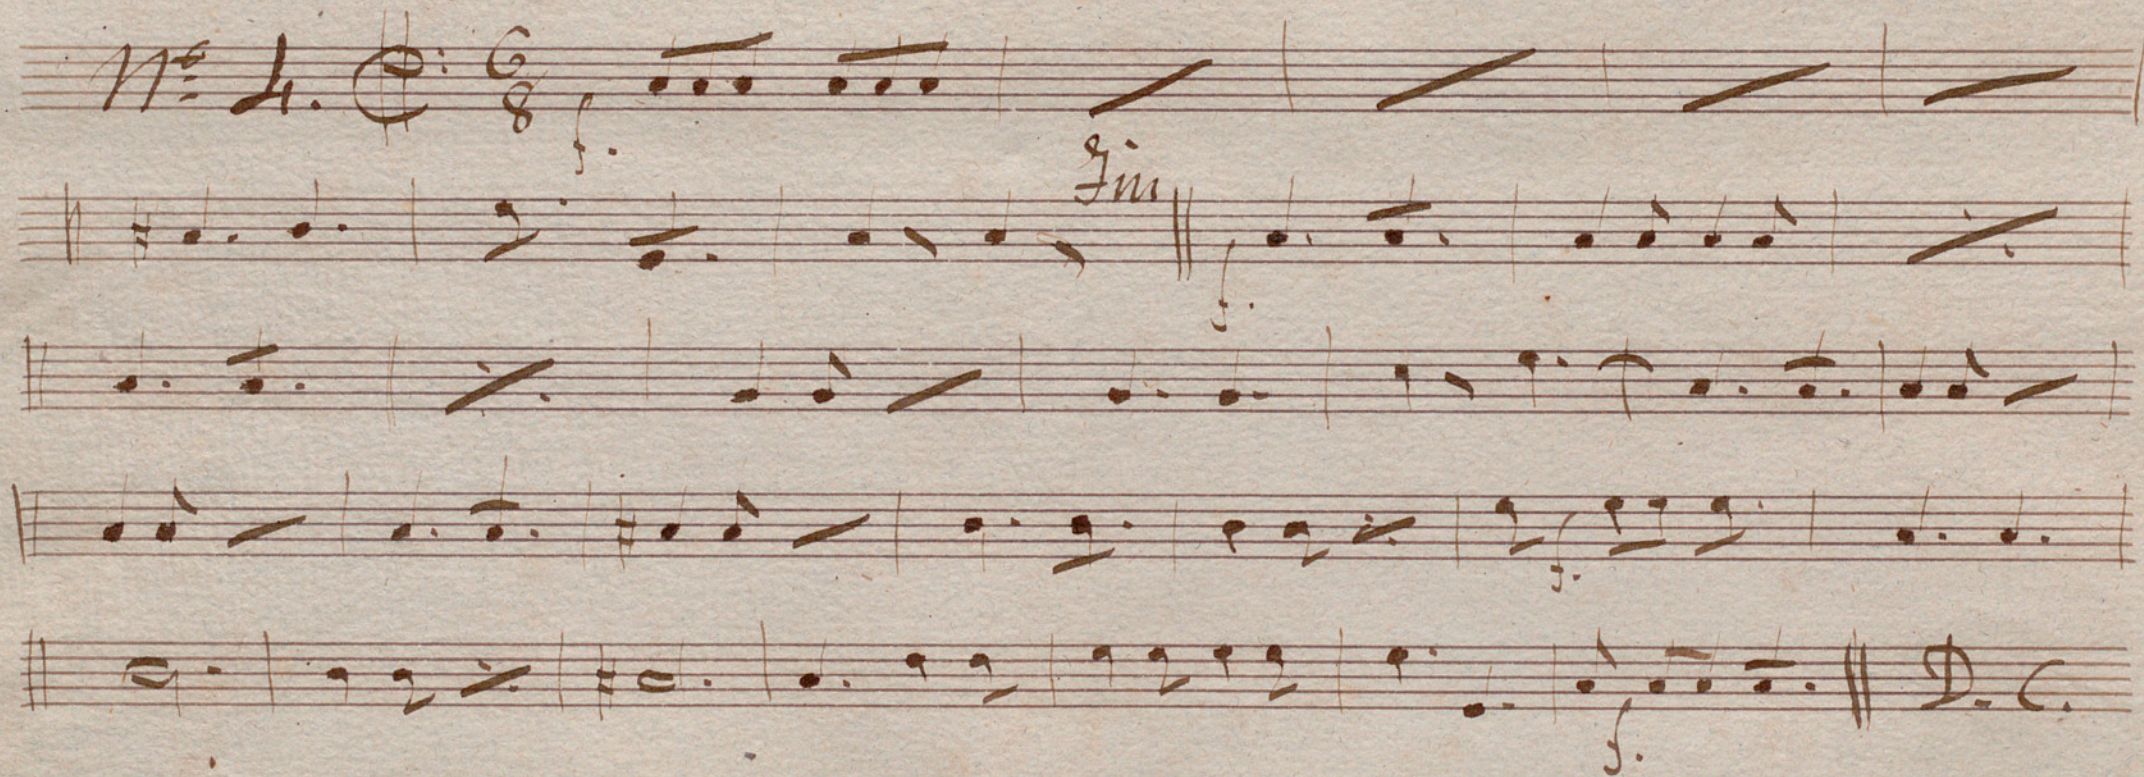 Nº 4. 6/8
f.
Fin
f.
f.
D. C.
f.